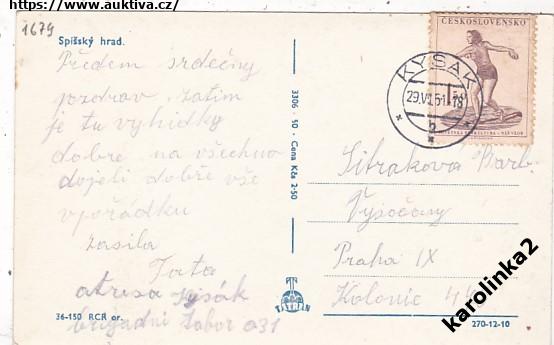 https://www.auktiva.cz/
1679
Spišský hrad.
Předem srdečný
pozdrav, zatím
je tu vyhidky
dobre na všechno
dojeli dobře vše
v pořádku
zasila
Tata
Kysák
brigadni tabor 031
36-150 RCR or.
3306 - 50 - Cena Kčs 2·50
TATRAN
ČESKOSLOVENSKO
KYSAK
29.VI.51-18
Barb.
Vysočany
Praha IX
Kolonie
270-12-10
karolinka2